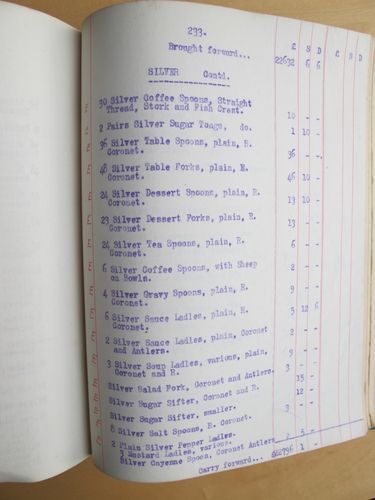 233.
£ S D £ S D
Brought forward... 22632 6 6
SILVER Contd.
30 Silver Coffee Spoons, Straight
Thread, Stork and Fish Crest. 10 - -
2 Pairs Silver Sugar Tongs, do. 1 10 -
36 Silver Table Spoons, plain, E.
Coronet. 36 - -
46 Silver Table Forks, plain, E.
Coronet. 46 10 -
24 Silver Dessert Spoons, plain, E.
Coronet. 13 10 -
23 Silver Dessert Forks, plain, E.
Coronet. 13 - -
24 Silver Tea Spoons, plain, E.
Coronet. 6 - -
6 Silver Coffee Spoons, with Sheep
on Bowls. 2 - -
4 Silver Gravy Spoons, plain, E.
Coronet. 9 - -
6 Silver Sauce Ladles, plain, E.
Coronet. 5 12 6
2 Silver Sauce Ladles, plain, Coronet
and Antlers. 2 - -
3 Silver Soup Ladles, various, plain,
Coronet and E. 9 - -
Silver Salad Fork, Coronet and Antlers. 3 - -
Silver Sugar Sifter, Coronet and E. 15 -
Silver Sugar Sifter, smaller. 12 -
8 Silver Salt Spoons, E. Coronet. 3 - -
2 Plain Silver Pepper Ladles.
3 Mustard Ladles, various. 2 5 -
Silver Cayenne Spoon, Coronet Antlers 1 -
Carry forward...